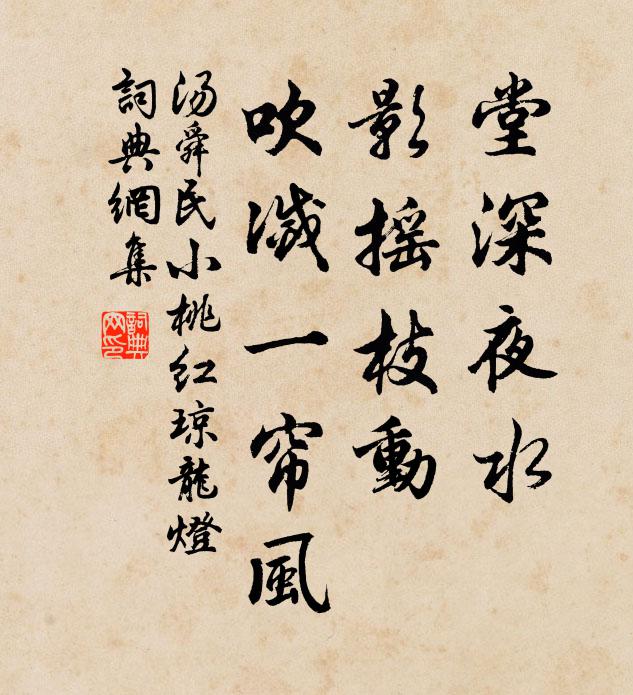 堂深夜水
影摇枝動
吹滅一帘風
汤舜民小桃红琼龍燈
詞典網集
詞典网印